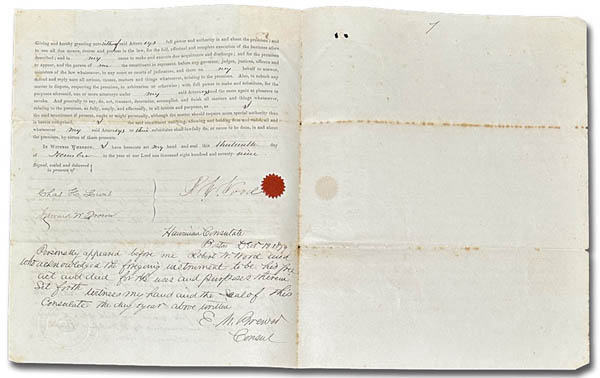 Giving and hereby granting unto said Attorneys full power and authority in and about the premises; and
to use all due means, course and process in the law, for the full, effectual and complete execution of the business afore
described; and in my name to make and execute due acquittance and discharge; and for the premises
to appear, and the person of me the constituent to represent before any governor, judges, justices, officers and
ministers of the law whatsoever, in any court or courts of judicature, and there on my behalf to answer,
defend and reply unto all actions, causes, matters and things whatsoever, relating to the premises. Also, to submit any
matter in dispute, respecting the premises, to arbitration or otherwise; with full power to make and substitute, for the
purposes aforesaid, one or more attorneys under my said Attorneys and the same again at pleasure to
revoke. And generally to say, do, act, transact, determine, accomplish and finish all matters and things whatsoever,
relating to the premises, as fully, amply, and effectually, to all intents and purposes, as I
the said constituent if present, ought or might personally, although the matter should require more special authority than
is herein comprised, I the said constituent ratifying, allowing and holding firm and valid all and
whatsoever my said Attorneys or their substitutes shall lawfully do, or cause to be done, in and about
the premises, by virtue of these presents.
In Witness Whereof, I have hereunto set my hand and seal this thirteenth day
of in the year of our Lord one thousand eight hundred and seventy nine
Signed, sealed and delivered
in presence of
Chas H.
R W Wood
Edward W.
Hawaiian Consulate
Boston 1879
Personally appeared before me Robert W. Wood and
acknowledged the foregoing instrument to be his free
act and deed for the uses and purposes therein
Set forth witness my hand and the Seal of this
Consulate the day & year above written
E. M. Brewer
Consul